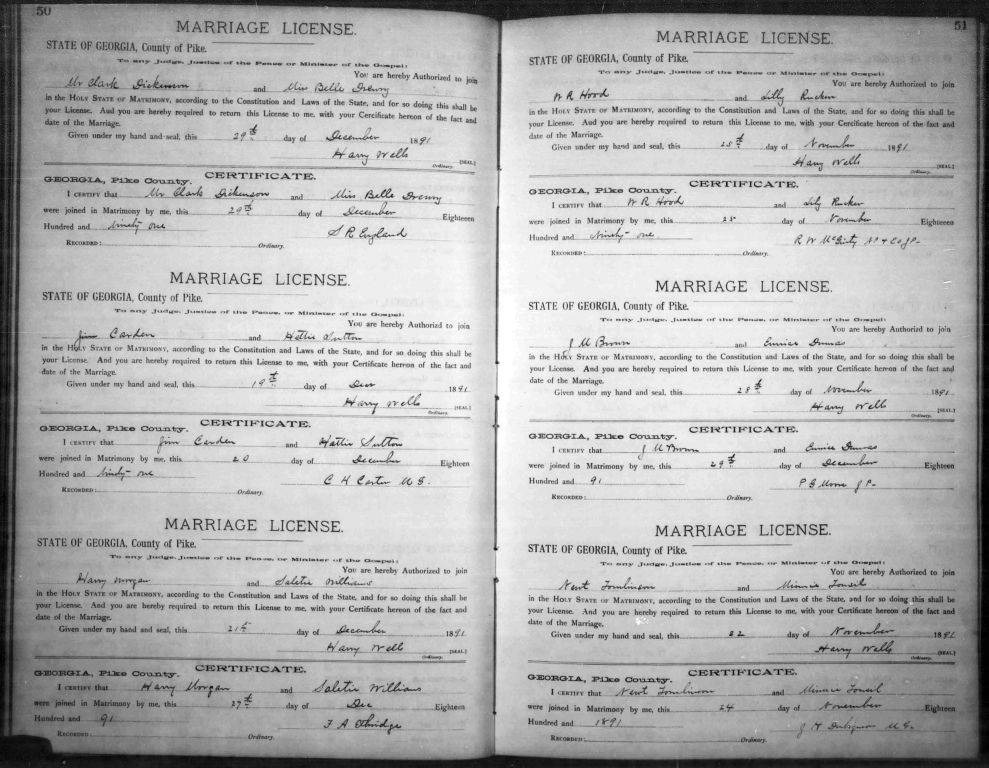 50
MARRIAGE LICENSE.
STATE OF GEORGIA, County of Pike.
To any Judge, Justice of the Peace or Minister of the Gospel:
You are hereby Authorized to join
Mr Clark Dickenson and Miss Belle Drewry
in the HOLY STATE OF MATRIMONY, according to the Constitution and Laws of the State, and for so doing this shall be
your License. And you are hereby required to return this License to me, with your Certificate hereon of the fact and
date of the Marriage.
Given under my hand and seal, this 29th day of December 1891
Harry Wells
Ordinary. [SEAL]
CERTIFICATE.
GEORGIA, Pike County.
I CERTIFY that Mr Clark Dickenson and Miss Belle Drewry
were joined in Matrimony by me, this 29th day of December Eighteen
Hundred and Ninety one S R England
RECORDED: Ordinary.
MARRIAGE LICENSE.
STATE OF GEORGIA, County of Pike.
To any Judge, Justice of the Peace, or Minister of the Gospel:
You are hereby Authorized to join
Jim Carden and Hattie Sutton
in the HOLY STATE OF MATRIMONY, according to the Constitution and Laws of the State, and for so doing this shall be
your License. And you are hereby required to return this License to me, with your Certificate hereon of the fact and
date of the Marriage.
Given under my hand and seal, this 19th day of Decr 1891
Harry Wells
Ordinary. [SEAL]
CERTIFICATE.
GEORGIA, Pike County.
I CERTIFY that Jim Carden and Hattie Sutton
were joined in Matrimony by me, this 20 day of December Eighteen
Hundred and Ninety one C H Carter M G.
RECORDED: Ordinary.
MARRIAGE LICENSE.
STATE OF GEORGIA, County of Pike.
To any Judge, Justice of the Peace, or Minister of the Gospel:
You are hereby Authorized to join
Harry Morgan and Saletie Williams
in the HOLY STATE OF MATRIMONY, according to the Constitution and Laws of the State, and for so doing this shall be
your License. And you are hereby required to return this License to me, with your Certificate hereon of the fact and
date of the Marriage.
Given under my hand and seal, this 21st day of December 1891
Harry Wells
Ordinary. [SEAL]
CERTIFICATE.
GEORGIA, Pike County.
I CERTIFY that Harry Morgan and Saletie Williams
were joined in Matrimony by me, this 27th day of Dec Eighteen
Hundred and 91 F A Ethridge
RECORDED: Ordinary.
51
MARRIAGE LICENSE.
STATE OF GEORGIA, County of Pike.
To any Judge, Justice of the Peace or Minister of the Gospel:
You are hereby Authorized to join
W R Hood and Lilly Rucker
in the HOLY STATE OF MATRIMONY, according to the Constitution and Laws of the State, and for so doing this shall be
your License. And you are hereby required to return this License to me, with your Certificate hereon of the fact and
date of the Marriage.
Given under my hand and seal, this 25th day of November 1891
Harry Wells
Ordinary. [SEAL]
CERTIFICATE.
GEORGIA, Pike County.
I CERTIFY that W R Hood and Lily Rucker
were joined in Matrimony by me, this 25 day of November Eighteeen
Hundred and Ninety-one. R W McGinty
RECORDED: Ordinary.
MARRIAGE LICENSE.
STATE OF GEORGIA, County of Pike.
To any Judge, Justice of the Peace, or Minister of the Gospel:
You are hereby Authorized to join
J M Brown and Eunice Dumas
in the HOLY STATE OF MATRIMONY, according to the Constitution and Laws of the State, and for so doing this shall be
your License. And you are hereby required to return this License to me, with your Certificate hereon of the fact and
date of the Marriage.
Given under my hand and seal, this 28th day of November 1891
Harry Wells
Ordinary. [SEAL]
CERTIFICATE.
GEORGIA, Pike County.
I CERTIFY that J M Brown and Eunice Dumas
were joined in Matrimony by me, this 29th day of December Eighteen
Hundred and 91 Moore J P-
RECORDED: Ordinary.
MARRIAGE LICENSE.
STATE OF GEORGIA, County of Pike.
To any Judge, Justice of the Peace, or Minister of the Gospel:
You are hereby Authorized to join
Newt Tomlinson and Minnie
in the HOLY STATE OF MATRIMONY, according to the Constitution and Laws of the State, and for so doing this shall be
your License. And you are hereby required to return this License to me, with your Certificate hereon of the fact and
date of the Marriage.
Given under my hand and seal, this 22 day of November 1891
Harry Wells
Ordinary. [SEAL]
CERTIFICATE.
GEORGIA, Pike County.
I CERTIFY that Newt Tomlinson and Minnie
were joined in Matrimony by me, this 24 day of November Eighteen
Hundred and 1891 J H M G.
RECORDED: Ordinary.